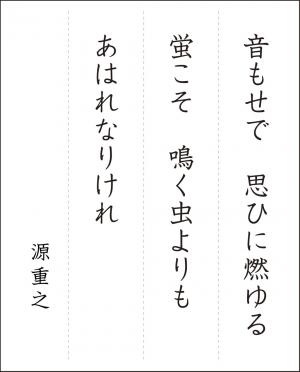 音もせで　思ひに燃ゆる
蛍こそ　鳴く虫よりも
あはれなりけれ
源重之